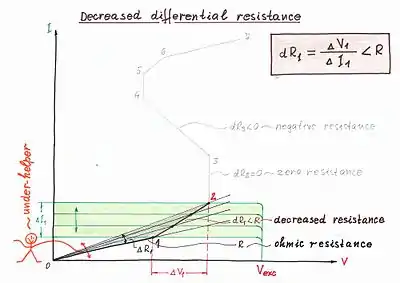 Decreased differential resistance
I
7
dR₁ = ΔV₁ / ΔI₁ < R
6
5
4
dR₃<0 ~ negative resistance
3
dR₂=0 ~ zero resistance
under-helper
2
ΔI₁
dR₁<R
decreased resistance
1
ΔR₁
R
ohmic resistance
0
ΔV₁
Vexc
V